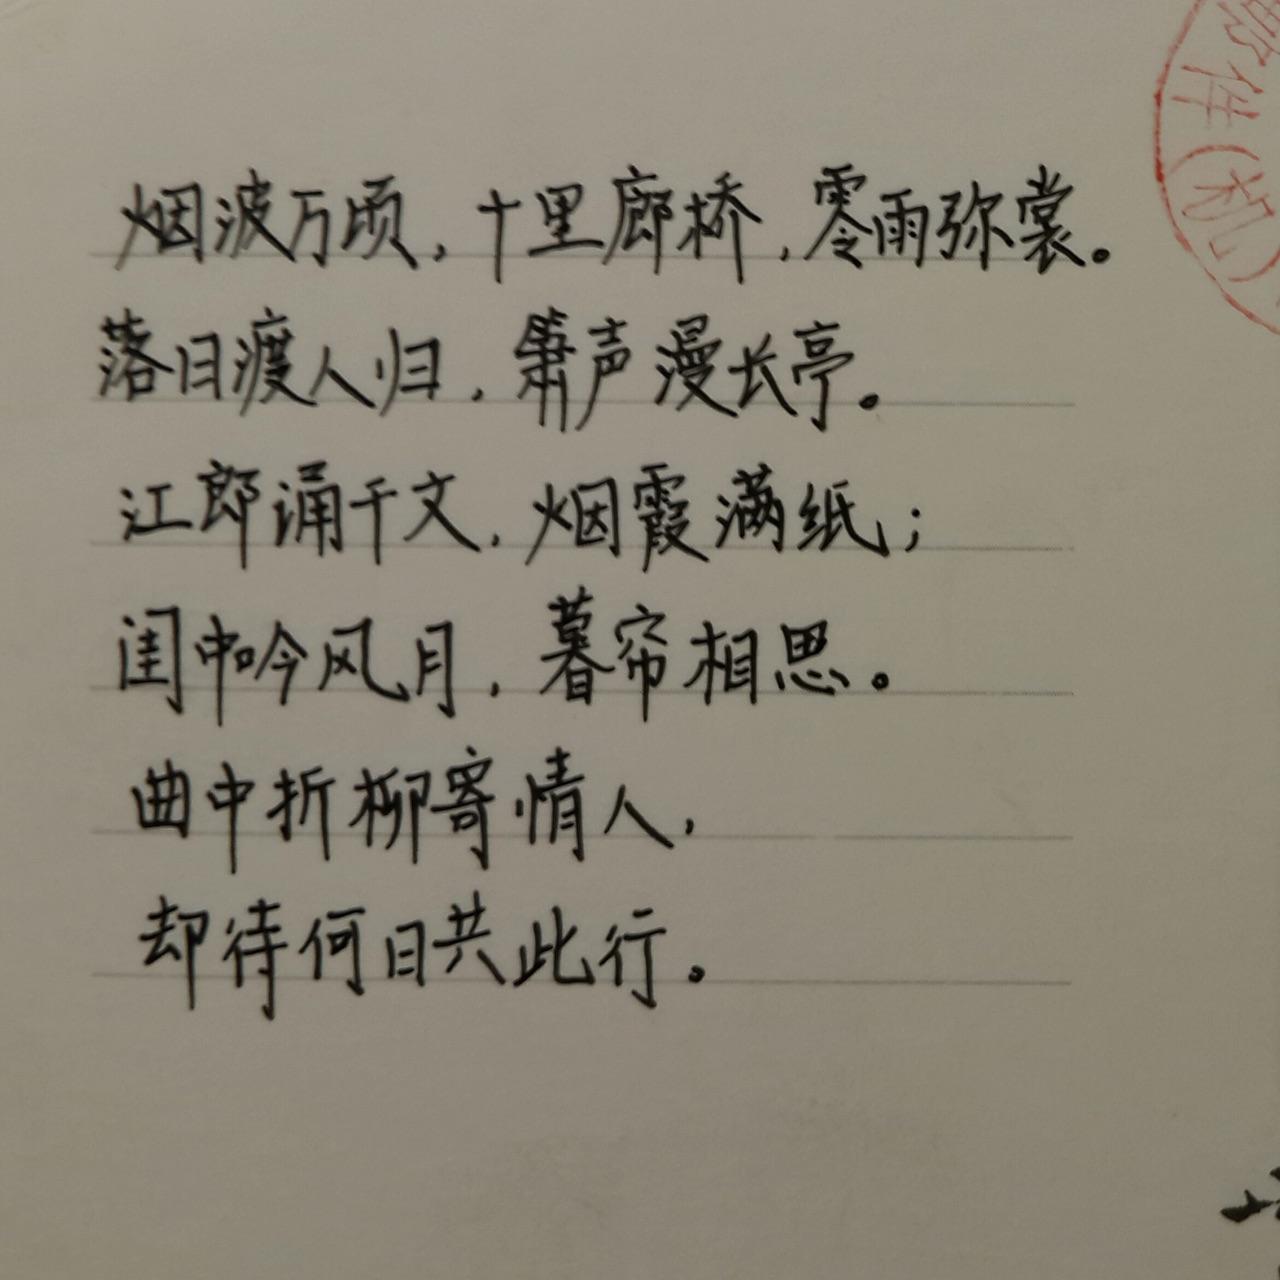 烟波万顷，十里廊桥，零雨弥裳。
落日渡人归，箫声漫长亭。
江郎诵千文，烟霞满纸；
闺中吟风月，暮帘相思。
曲中折柳寄情人，
却待何日共此行。
件（机）